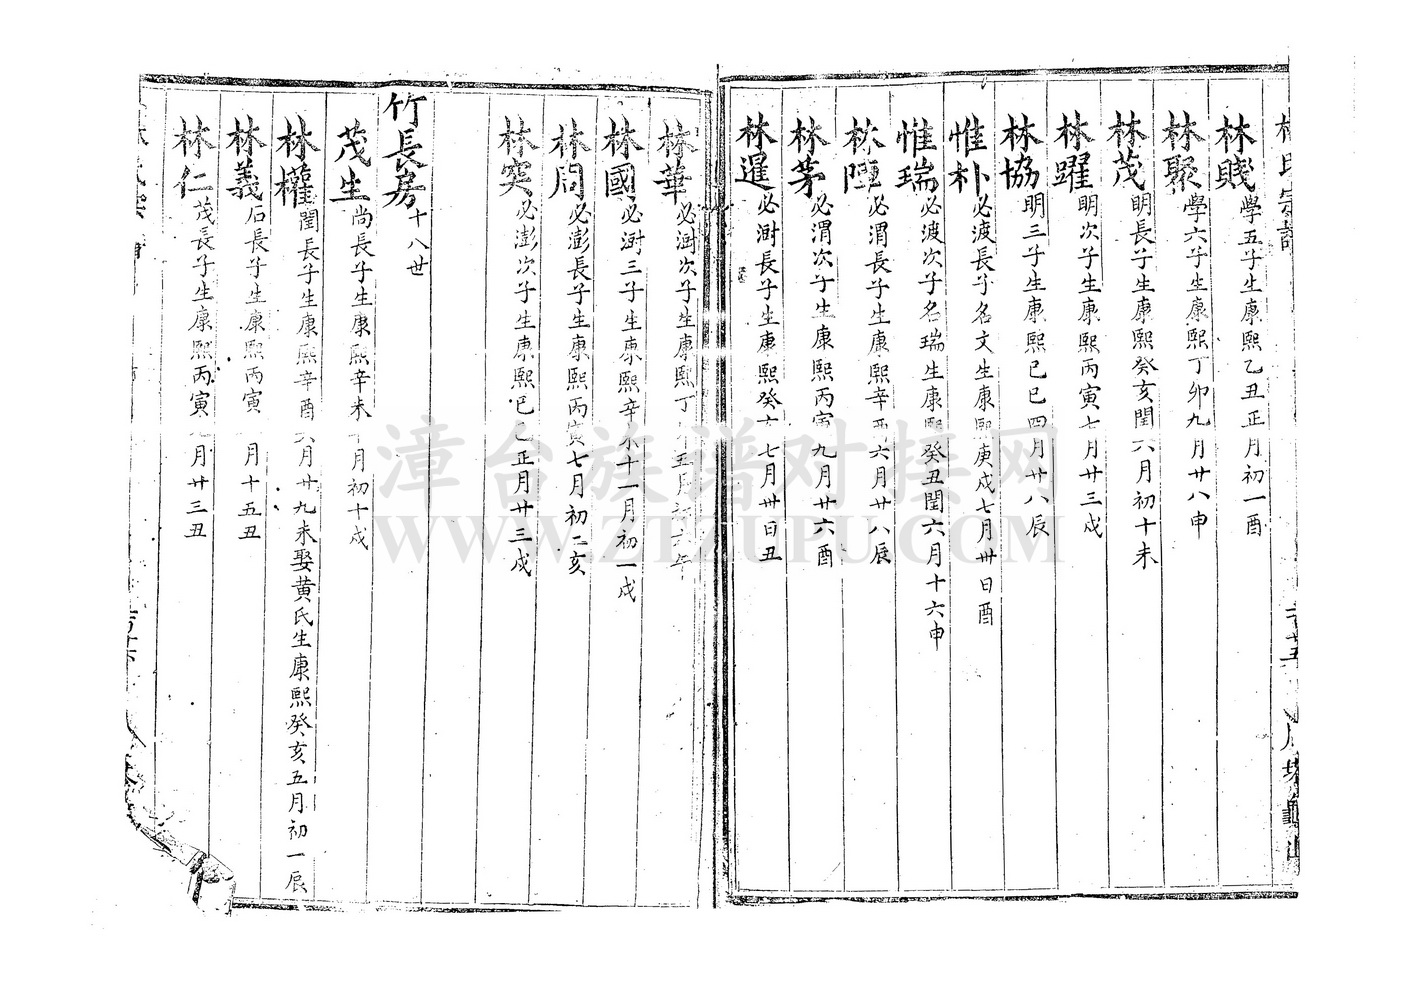 林氏宗譜
林賤 學五子生康熙乙丑正月初一酉
林聚 學六子生康熙丁卯九月廿八申
林茂 明長子生康熙癸亥閏六月初十未
林躍 明次子生康熙丙寅七月廿三戌
林協 明三子生康熙已巳四月廿八辰
惟朴 必波長子名文生康熙庚戌七月卅日酉
惟瑞 必波次子名瑞生康熙癸丑閏六月十六申
林陣 必渭長子生康熙辛酉六月廿八辰
林茅 必渭次子生康熙丙寅九月廿六酉
林暹 必澍長子生康熙癸亥七月卅日丑
林華 必澍次子生康熙丁卯五月初六午
林國 必澍三子生康熙辛未十一月初一戌
林周 必澎長子生康熙丙寅七月初二亥
林突 必澎次子生康熙已巳正月廿三戌
竹長房 十八世
茂生 尚長子生康熙辛未十月初十戌
林權 閏長子生康熙辛酉六月廿九未娶黃氏生康熙癸亥五月初一辰
林義 石長子生康熙丙寅 月十五丑
林仁 茂長子生康熙丙寅九月廿三丑
漳台族谱对接网
WWW.ZTZUPU.COM